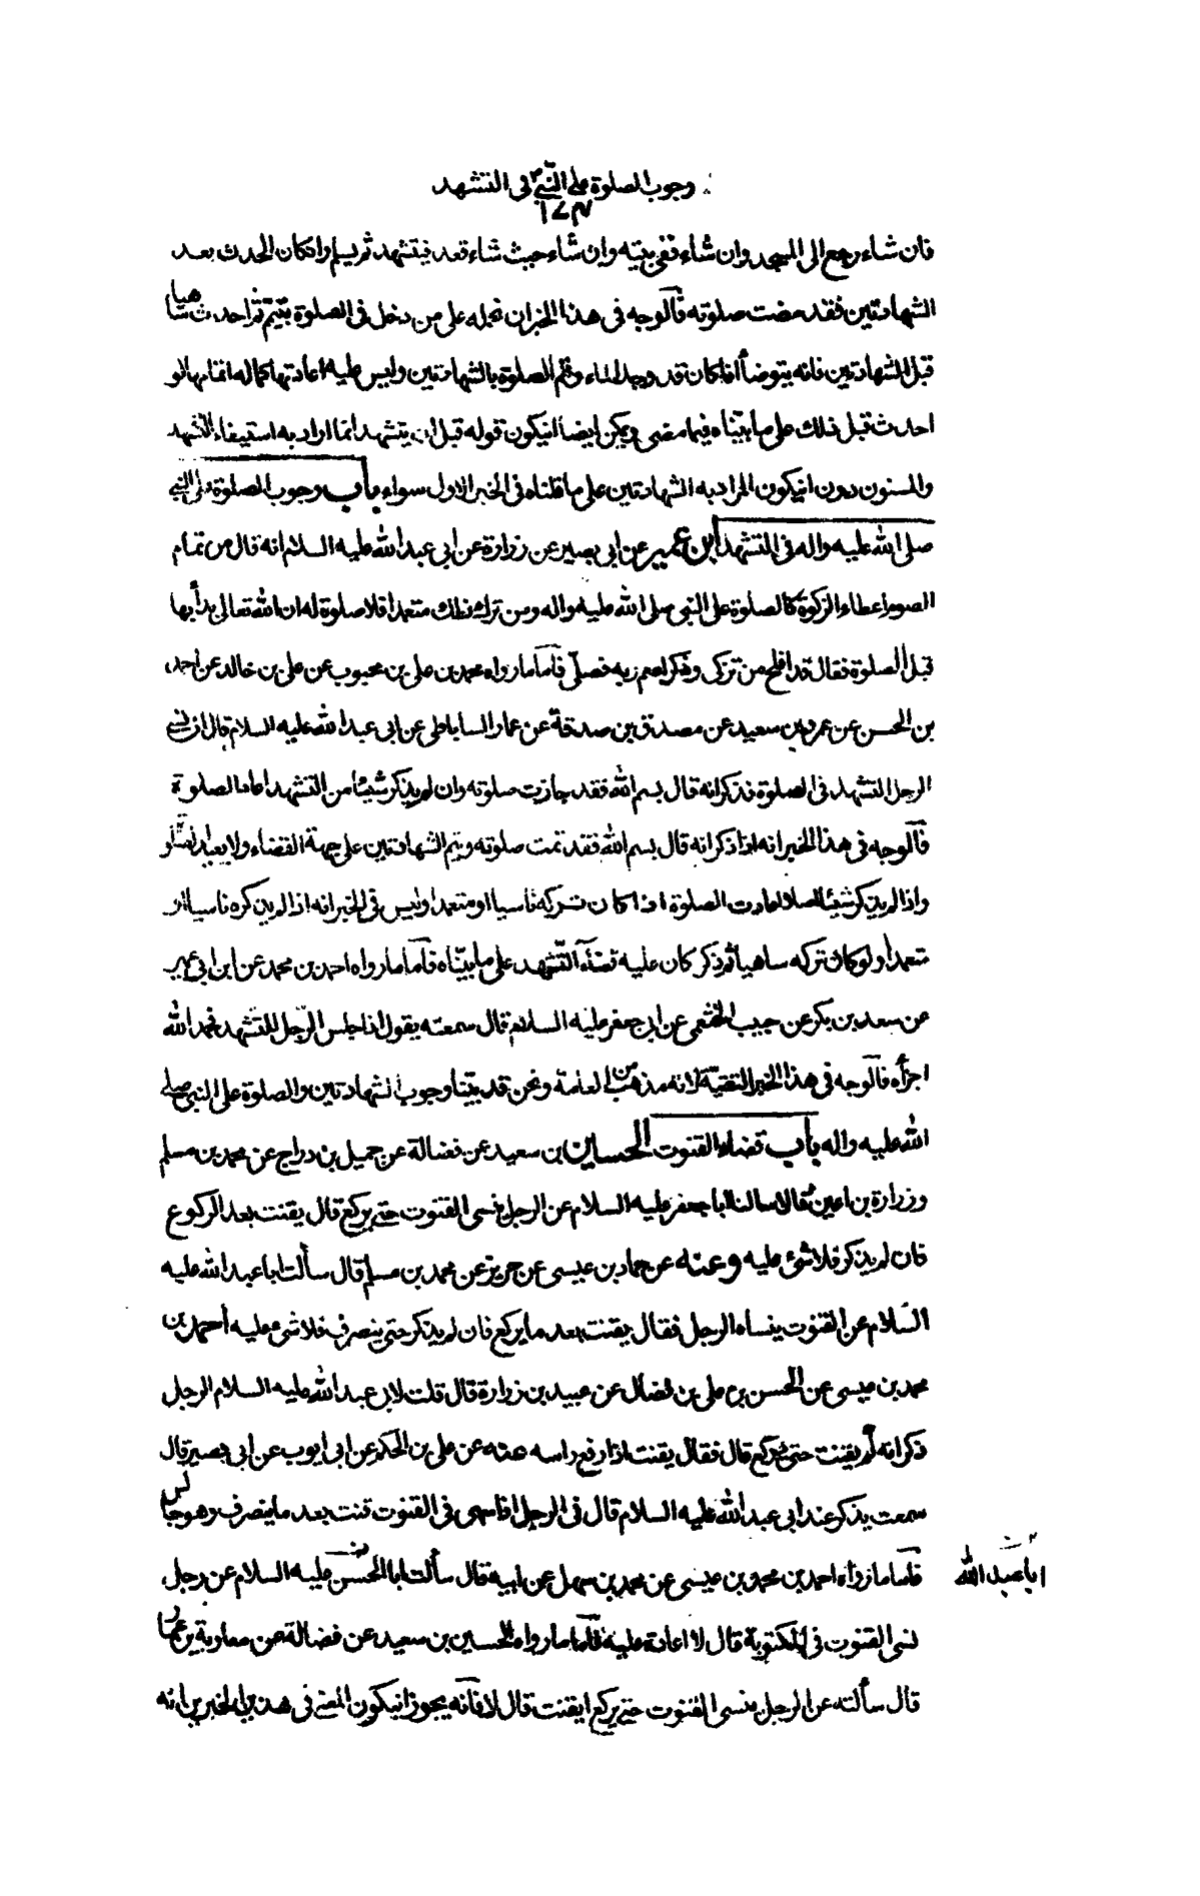 وجوب الصلوة على النبيّ في التشهد
١٧٣
فان شاء رجع الى المسجد وان شاء ففي بيته وان شاء حيث شاء قعد فيتشهد ثم يسلم وان كان الحدث بعد
الشهادتين فقد مضت صلوته فالوجه في هذا الخبر ان نحمله على من دخل في الصلوة بتيمم ثم احدث ساهيا
قبل الشهادتين فانه يتوضأ اذا كان قد وجد الماء ويتم الصلوة بالشهادتين وليس عليه اعادتها كما له اتمامها لو
احدث قبل ذلك على ما بيناه فيما مضى ويمكن ايضا ان يكون قوله قبل ان يتشهد انما اراد به استيفاء التشهد
والمسنون دون ان يكون المراد به الشهادتين على ما قلناه في الخبر الاول سواء باب وجوب الصلوة على النبي
صلى الله عليه واله في التشهد ابن عمير عن ابي بصير عن زرارة عن ابي عبد الله عليه السلام انه قال من تمام
الصوم اعطاء الزكوة كالصلوة على النبي صلى الله عليه واله ومن ترك ذلك متعمدا فلا صلوة له ان الله تعالى بدأ بها
قبل الصلوة فقال قد افلح من تزكى وذكر اسم ربه فصلى فاما ما رواه محمد بن علي بن محبوب عن علي بن خالد عن احمد
بن الحسن عن عمرو بن سعيد عن مصدق بن صدقة عن عمار الساباطي عن ابي عبد الله عليه السلام قال ان نسي
الرجل التشهد في الصلوة فذكر انه قال بسم الله فقد جازت صلوته وان لم يذكر شيئا من التشهد اعاد الصلوة
فالوجه في هذا الخبر انه اذا ذكر انه قال بسم الله فقد تمت صلوته ويتم الشهادتين على جهة القضاء ولا يعيد الصلوة
واذا لم يذكر شيئا اصلا اعادت الصلوة اذا كان تركه ناسيا او متعمدا وليس في الخبر انه اذا لم يذكره ناسيا او
متعمدا ولو كان تركه ساهيا ثم ذكر كان عليه قضاء التشهد على ما بيناه فاما ما رواه احمد بن محمد عن ابن ابي عمير
عن سعد بن بكر عن حبيب الخثعمي عن ابي جعفر عليه السلام قال سمعته يقول اذا جلس الرجل للتشهد فحمد الله
اجزأه فالوجه في هذا الخبر التقية لانه مذهب من العامة ونحن قد بينا وجوب الشهادتين والصلوة على النبي صلى
الله عليه واله باب قضاء القنوت الحسين بن سعيد عن فضالة عن جميل بن دراج عن محمد بن مسلم
وزرارة بن اعين قالا سالنا ابا جعفر عليه السلام عن الرجل ينسى القنوت حتى يركع قال يقنت بعد الركوع
فان لم يذكر فلا شئ عليه وعنه عن حماد بن عيسى عن حريز عن محمد بن مسلم قال سألت ابا عبد الله عليه
السلام عن القنوت ينساه الرجل فقال يقنت بعد ما يركع فان لم يذكر حتى ينصرف فلا شئ عليه احمد بن
محمد بن عيسى عن الحسن بن علي بن فضال عن عبيد بن زرارة قال قلت لابي عبد الله عليه السلام الرجل
ذكر انه لم يقنت حتى يركع قال فقال يقنت اذا رفع راسه عنه عن علي بن الحكم عن ابي ايوب عن ابي بصير قال
سمعت يذكر عند ابي عبد الله عليه السلام قال في الرجل اذا سهى في القنوت قنت بعد ما ينصرف وهو جالس
فاما ما رواه احمد بن محمد بن عيسى عن محمد بن سهل عن ابيه قال سألت ابا الحسن عليه السلام عن رجل
ابا عبد الله
نسي القنوت في المكتوبة قال لا اعادة عليه فاما ما رواه الحسين بن سعيد عن فضالة عن معاوية بن عمار
قال سألته عن الرجل ينسى القنوت حتى يركع ايقنت قال لا فانه يجوز ان يكون المعنى في هذين الخبرين انه